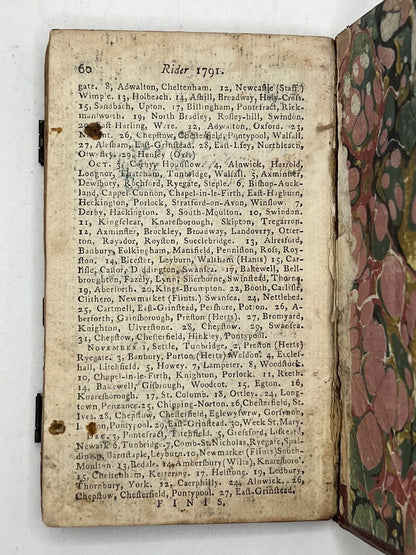 60 Rider 1791.
gate. 8, Adwalton, Cheltenham. 12, Newcastle (Staff)
Wimp'e. 13, Holbeach. 14, Ashill, Broadway, Holy-Cross.
15, Sandbach, Upton. 17, Billingham, Pontefract, Rick-
manworth. 19, North Bradley, Rosley-hill, Swindon.
East Harling, Ware. 22, Adwalton, Oxford. 23,
Newent. 26, Chepstow, Chesterfield, Pontypool, Walfall.
27, Alesham, East-Grinstead. 28, East-Isley, Northleach,
Olweltry. 29, Henley (Oxf)
OCT. 3, Corby, Hounslow. 4, Alnwick, Harrold,
Longnor, Thatcham, Tunbridge, Walfall. 5, Axminster,
Dewsbury, Rochford, Ryegate, Steple. 6, Bishop-Auck-
land, Cappel-Cunnon, Chapel-in-le-Firth, East-Hagburn,
Heckington, Porlock, Stratford-on-Avon, Winslow. 7,
Derby, Hackington. 8, South-Moulton. 10, Swindon.
11, Kingsclear, Knaresborough, Skipton, Tregarren.
12, Axminster, Brockley, Broadway, Landovery, Otter-
ton, Rayador, Royston, Succlebridge. 13, Alresford,
Banbury, Folkingham, Mansfield, Penniston, Ross, Roy-
ston. 14, Bicester, Leyburn, Waltham (Hants) 15, Car-
lisle, Castor, Diddington, Swansea. 17, Bakewell, Bell-
broughton, Fazely, Lynn; Sherborne, Swinstead, Thorne.
19, Aberforth. 20, Kings-Brompton. 22, Booth, Carlisle,
Clithero, Newmarket (Flints.) Swansea. 24, Nettlebed.
25, Cartmell, East-Grinstead, Pershure, Potton. 26, A-
berforth, Gainsborough, Preston (Herts) 27, Bromyard,
Knighton, Ulverstone. 28, Chepstow. 29, Swansea.
31, Chepstow, Chesterfield, Hinkley, Pontipool.
NOVEMBER 1, Walfal, Tunbridge. 2, Preston (Herts)
Ryegate. 3, Banbury, Purton (Herts) Weldon. 4, Eccles-
hall, Litchfield. 5, Howey. 7, Lampeter. 8, Woodstock.
10, Chapel-in-le-Firth, Knighton, Porlock. 11, Reeth.
14, Bakewell, Gisbrough, Woodtot. 15, Egton. 16,
Knaresborough. 17, St. Columb. 18, Ottley. 24, Long-
town, Penzance. 25, Chipping-Norton. 26, Chesterfield, St.
Ives. 28, Chepstow, Chesterfield, Eglewyfwrw, Gorsynon,
Pontypool. 29, East-Grinstead. 30, Week St. Mary.
DEC. 3, Pontefract, Titchfield. 5, Gresford, Liskeard,
Newark 6, Tunbridge. 7, Comb-St. Nicholas, Ryegate, Spa-
Barnstaple, Leyborn. 10, Newmarket (Flints) South-
Moulton. 13, Bedale. 14, Ambersbury (Wilts), Knaresboro'.
15, Cheltenham, Kettering. 17, Helstone. 19, Ledbury,
Thornbury, York. 22, Caerphilly. 24, Alnwick. 26,
Chepstow, Chesterfield, Pontypool. 27, East-Grinstead.
FINIS.